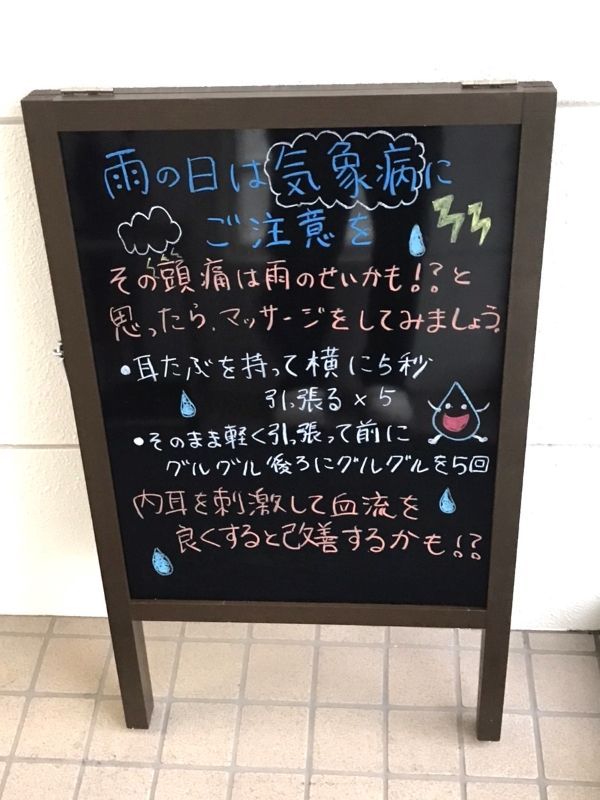 雨の日は気象病に
ご注意を
その頭痛は雨のせいかも!?と
思ったら、マッサージをしてみましょう。
•耳たぶを持って横に5秒
引っ張る×5
•そのまま軽く引っ張って前に
グルグル後ろにグルグルを5回
内耳を刺激して血流を
良くすると改善するかも!?